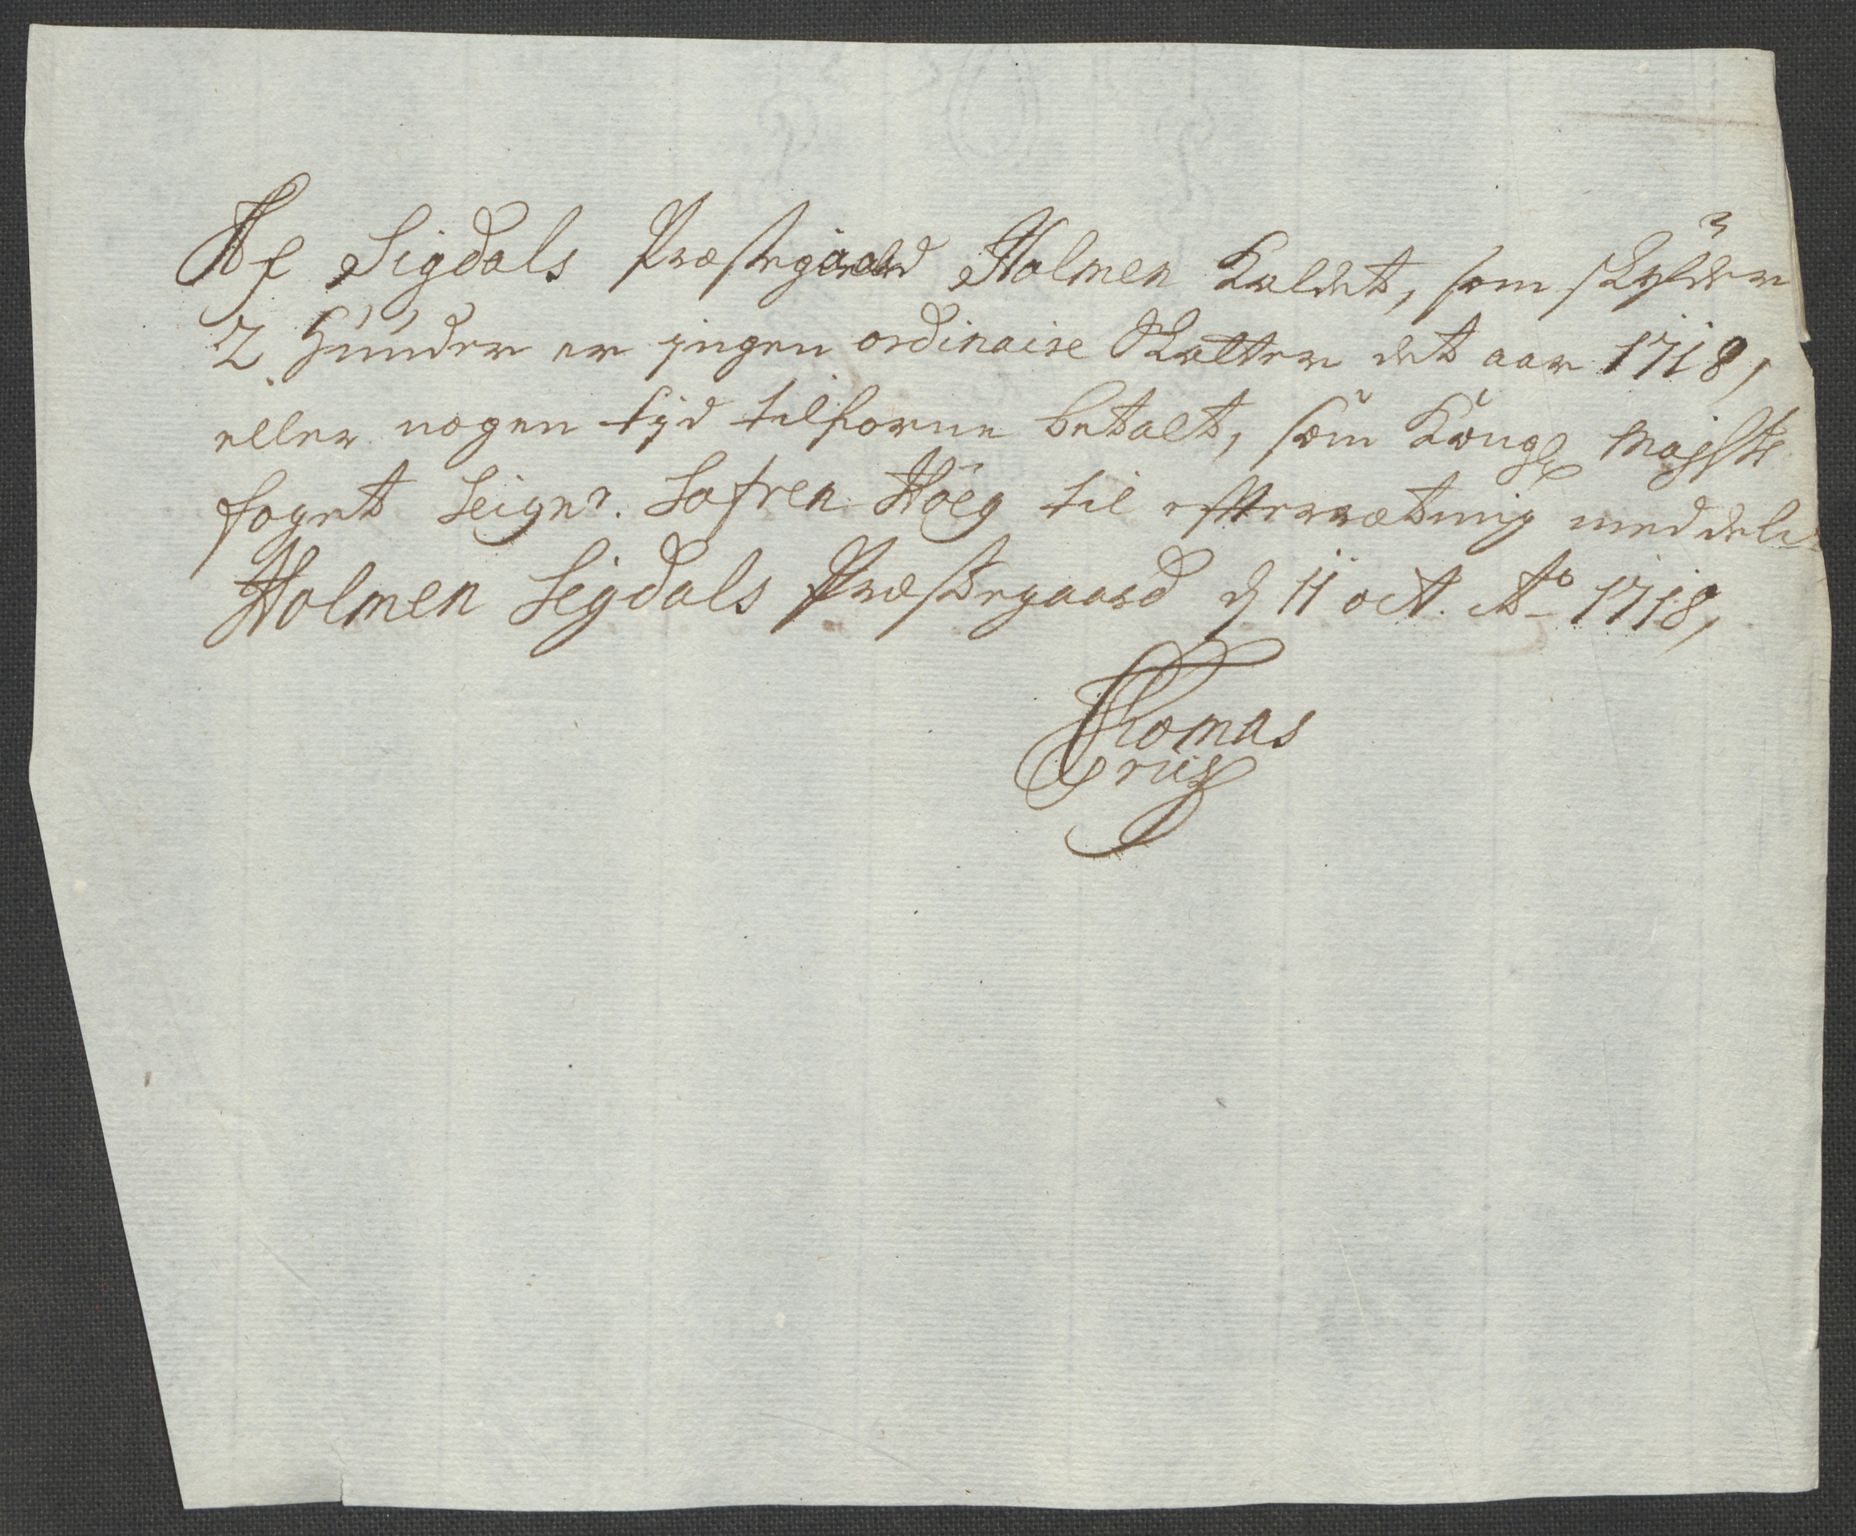 Af Sigdals Præstegaard Holmen Kaldet, som skylder
2 Hunder er ingen ordinaire Skatter det aar 1718,
eller nogen tyd tilforne betalt, som Kongl Mayst
foget Seignr. Safren Höeg til efterrætning meddeles
Holmen Sigdals Præstegaard d 11 oct. Ao 1718,
Thomas